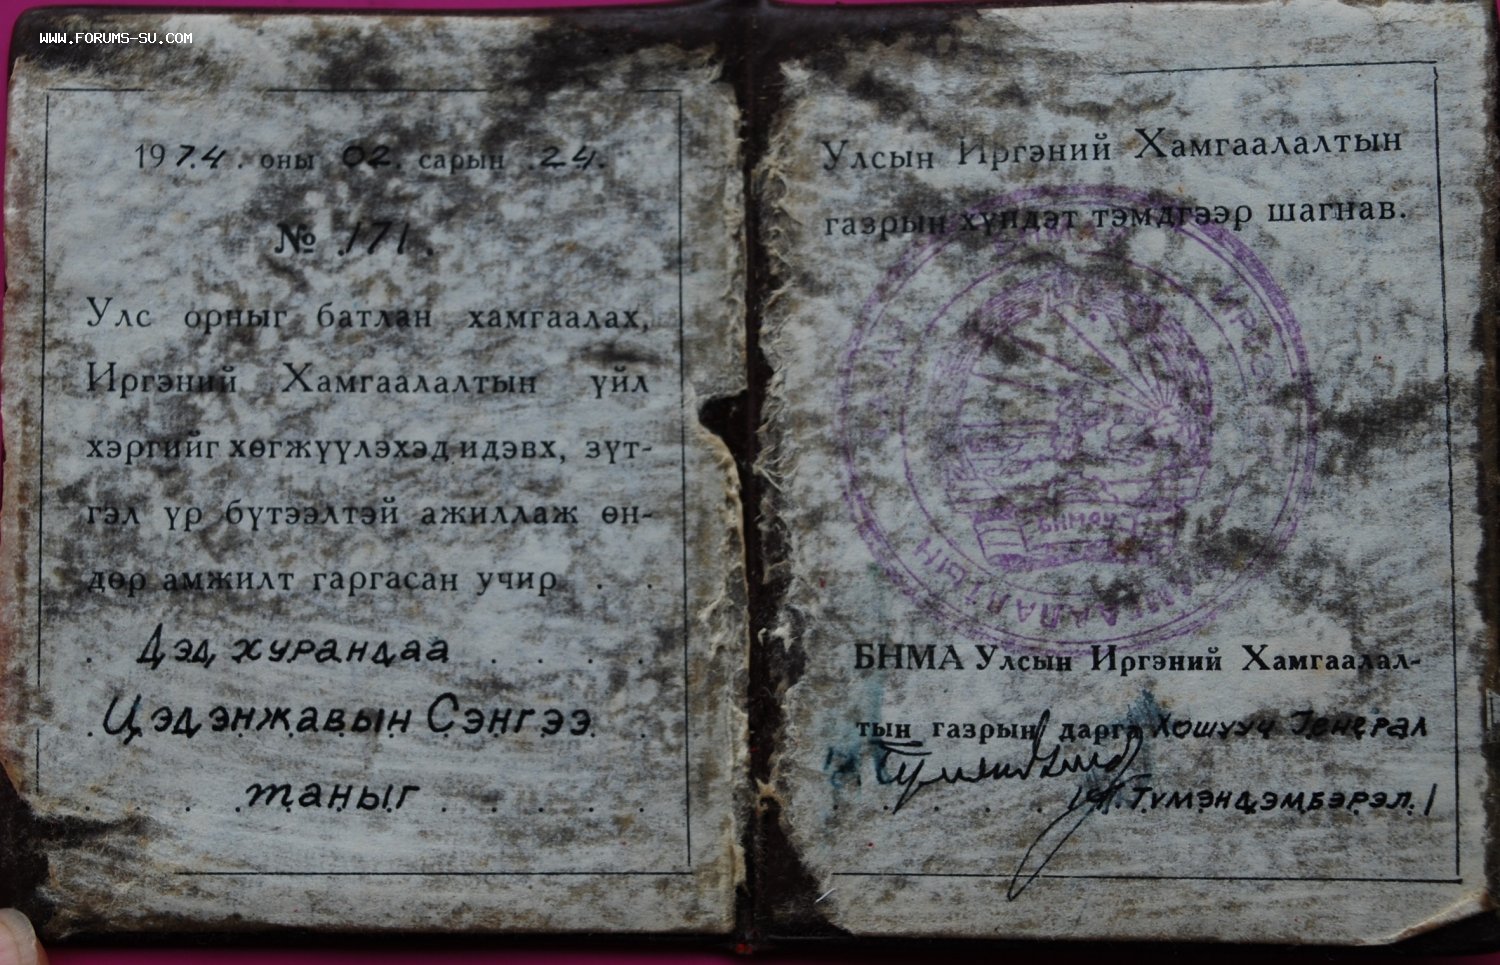 WWW.FORUMS-SU.COM
1974. оны 02. сарын 24.
№ 171.
Улс орныг батлан хамгаалах,
Иргэний Хамгаалалтын үйл
хэргийг хөгжүүлэхэд идэвх, зүт-
гэл үр бүтээлтэй ажиллаж өн-
дөр амжилт гаргасан учир . .
. Дэд хурандаа . . . .
. Цэдэнжавын Сэнгээ . .
. . . таныг . . . . .
Улсын Иргэний Хамгаалалтын
газрын хүндэт тэмдгээр шагнав.
БНМАУ
БНМА Улсын Иргэний Хамгаалал-
тын газрын дарга Хошууч Генерал
Түмэндэмбэрэл